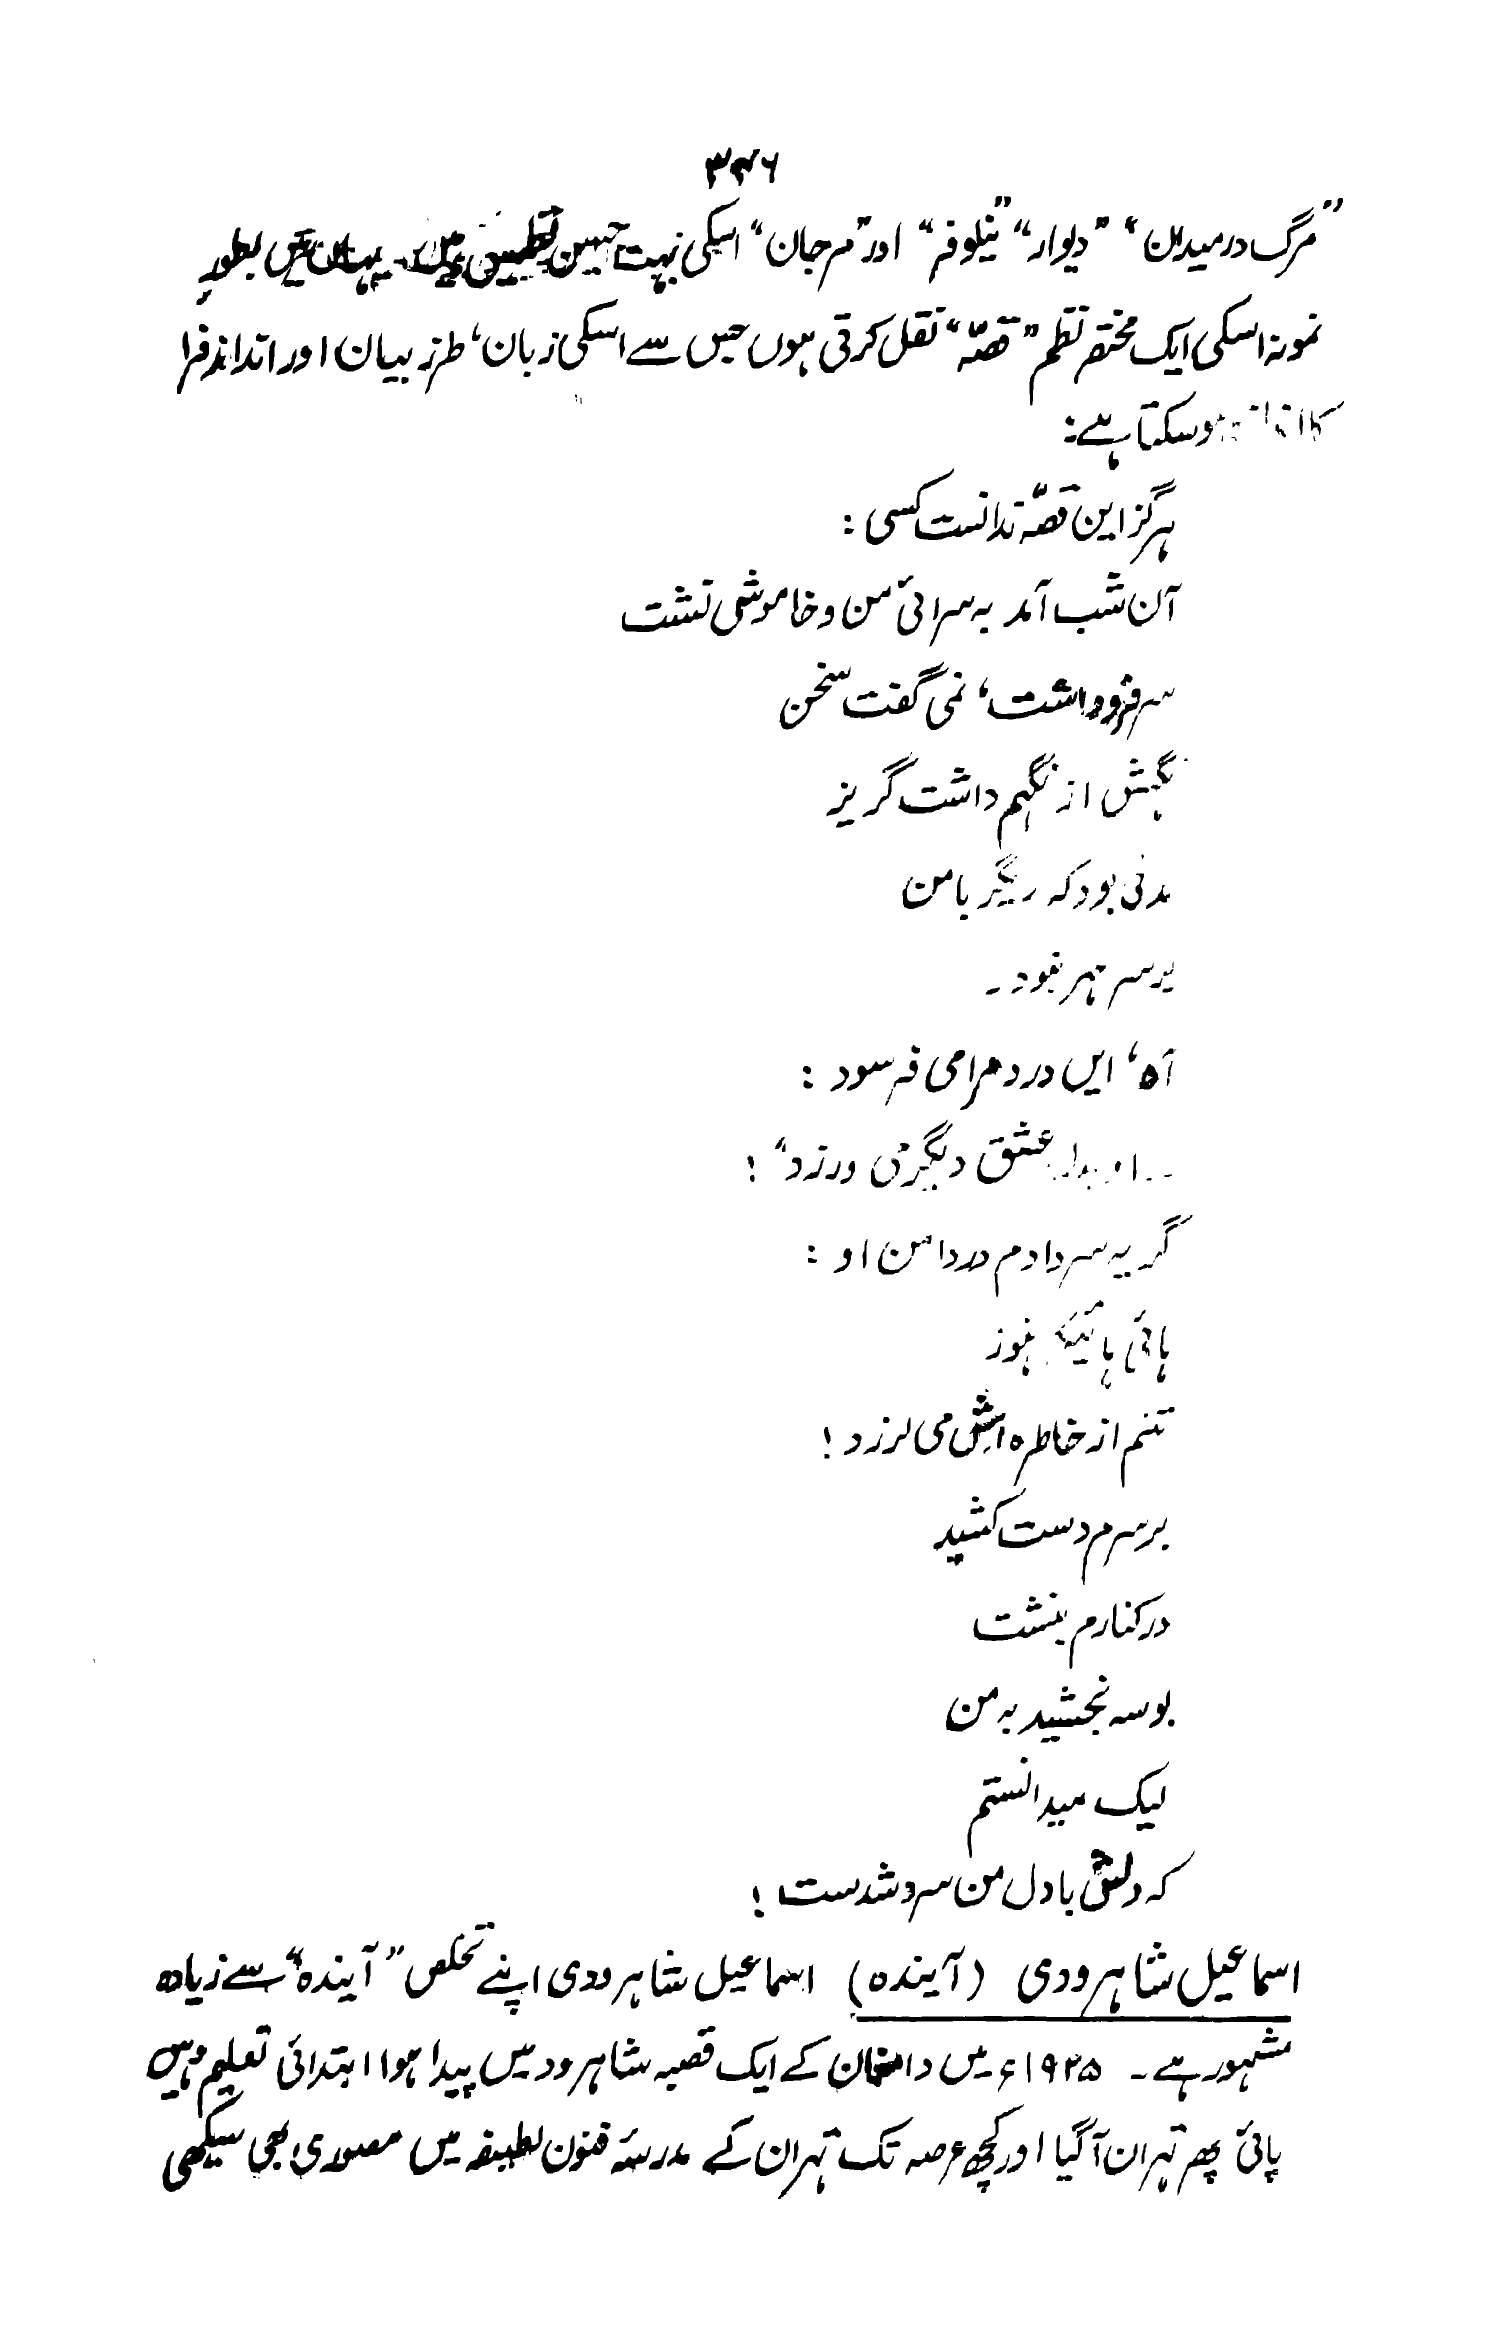 ۳۴۶
”مرگ در میدان“ ”دیوار“ ”نیلوفر“ اور ”مرجان“ اسکی بہت حسین نظمیں ہیں۔ یہاں میں بطورِ
نمونہ اسکی ایک مختصر نظم ”قصّہ“ نقل کرتی ہوں جس سے اسکی زبان، طرز بیان اور انداز فرا
کا ہوسکتا ہے:
ہرگز این قصّہ ندانست کسی :
آن شب آمد بہ سرائی من و خاموش نشست
سر فرو داشت، نمی گفت سخن
نگہش از نگہم داشت گریز
مدتی بود کہ دیگر با من
بر سر مہر نبود ۔
آہ، این درد مرا می فرسود :
عشق دیگر می ورزد“ !
گریہ سر دادم در دامن او :
ہائی ہنوز
تنم از خاطرہ اش می لرزد !
بر سرم دست کشید
در کنارم بنشست
بوسہ بخشید بہ من
لیک میدانستم
کہ دلش با دل من سرد شدست !
اسماعیل شاہرودی (آیندہ) اسماعیل شاہرودی اپنے تخلص ”آیندہ“ سے زیادہ
مشہور ہے ۔ ۱۹۲۵ء میں دامغان کے ایک قصبہ شاہرود میں پیدا ہوا ابتدائی تعلیم وہیں
پائی پھر تہران آگیا اور کچھ عرصہ تک تہران کے مدرسۂ فنون لطیفہ میں مصوری بھی سیکھی